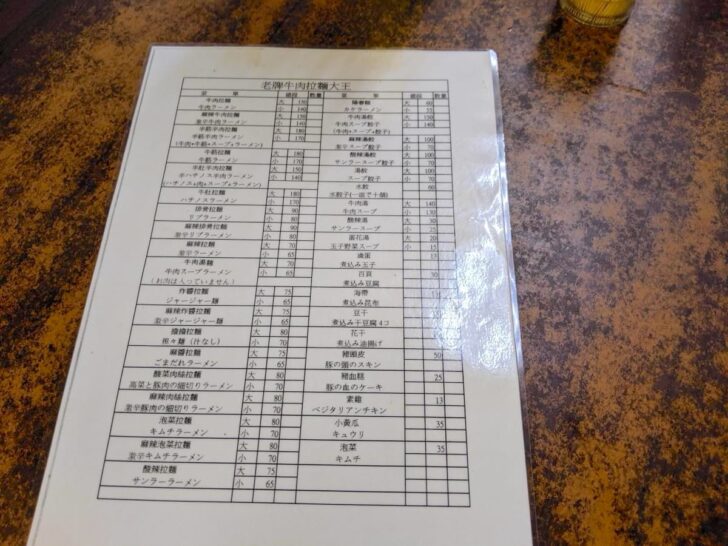 老牌牛肉拉麵大王
菜 單 價錢 數量 菜 單 價錢 數量
牛肉拉麵 大 150
牛肉ラーメン 小 140
麻辣牛肉拉麵 大 150
激辛牛肉ラーメン 小 140
半筋半肉拉麵 大 180
半筋半肉ラーメン 小 170
(牛肉+牛筋+スープ+ラーメン)
牛筋拉麵 大 180
牛筋ラーメン 小 170
半肚半肉拉麵 大 150
半ハチノス半肉ラーメン 小 140
(ハチノス+肉+スープ+ラーメン)
牛肚拉麵 大 180
ハチノスラーメン 小 170
排骨拉麵 大 90
リブラーメン 小 80
麻辣排骨拉麵 大 90
激辛リブラーメン 小 80
麻辣拉麵 大 70
激辛ラーメン 小 65
牛肉湯麵 大 70
牛肉スープラーメン 小 65
(お肉は入っていません)
炸醬拉麵 大 75
ジャージャー麺 小 65
麻辣炸醬拉麵 大 75
激辛ジャージャー麺 小 65
擔擔拉麵 大 75
坦々麺（汁なし） 小 65
麻醬拉麵 大 75
ごまだれラーメン 小 65
酸菜肉絲拉麵 大 80
高菜と豚肉の細切りラーメン 小 70
麻辣肉絲拉麵 大 80
激辛豚肉の細切りラーメン 小 70
泡菜拉麵 大 80
キムチラーメン 小 70
麻辣泡菜拉麵 大 80
激辛キムチラーメン 小 70
酸辣拉麵 大 75
サンラーラーメン 小 65
陽春麵 大 60
カケラーメン 小 55
牛肉湯餃 大 150
牛肉スープ餃子 小 140
(牛肉+スープ+餃子)
麻辣湯餃 大 100
激辛スープ餃子 小 70
酸辣湯餃 大 100
サンラースープ餃子 小 70
湯餃 大 100
スープ餃子 小 70
水餃 60
水餃子(一皿で十個)
牛肉湯 大 140
牛肉スープ 小 130
酸辣湯 大 30
サンラースープ 小 25
蛋花湯 大 20
玉子野菜スープ 小 15
滷蛋
煮込み玉子
百頁
煮込み豆腐
海帶
煮込み昆布
豆干
煮込み干豆腐4コ
花干
煮込み油揚げ
豬頭皮 50
豚の頭のスキン
豬血糕 25
豚の血のケーキ
素雞 13
ベジタリアンチキン
小黃瓜 35
キュウリ
泡菜 35
キムチ